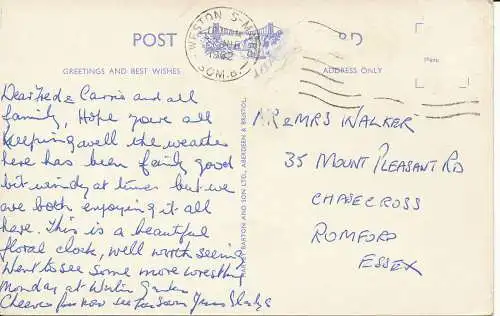 POST
WESTON-S-MARE
1962
SOM.
GREETINGS AND BEST WISHES
ADDRESS ONLY
Dear Fred & Carrie and all
family, Hope youre all
keeping well the weather
here has been fairly good
bit windy at times but we
are both enjoying it all
here. This is a beautiful
floral clock, well worth seeing
Went to see some more wrestling
monday at Winter Gardens
Cheerio for now see you soon
HARVEY BARTON AND SON LTD., ABERDEEN & BRISTOL.
MR & MRS WALKER
35 MOUNT PLEASANT RD
CHASECROSS
ROMFORD
ESSEX